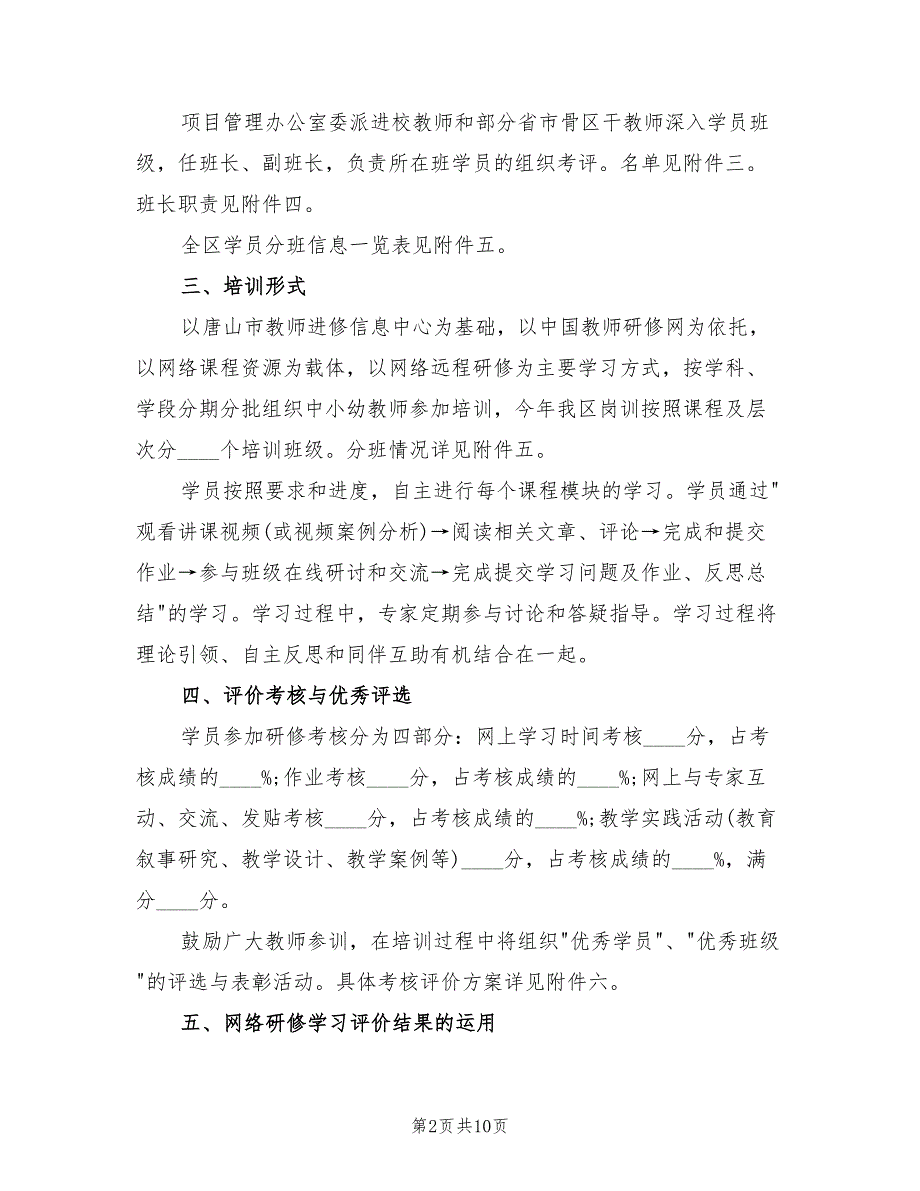 项目管理办公室委派进校教师和部分省市骨区干教师深入学员班
级，任班长、副班长，负责所在班学员的组织考评。名单见附件三。
班长职责见附件四。
全区学员分班信息一览表见附件五。
三、培训形式
以唐山市教师进修信息中心为基础，以中国教师研修网为依托，
以网络课程资源为载体，以网络远程研修为主要学习方式，按学科、
学段分期分批组织中小幼教师参加培训，今年我区岗训按照课程及层
次分____个培训班级。分班情况详见附件五。
学员按照要求和进度，自主进行每个课程模块的学习。学员通过"
观看讲课视频(或视频案例分析)→阅读相关文章、评论→完成和提交
作业→参与班级在线研讨和交流→完成提交学习问题及作业、反思总
结"的学习。学习过程中，专家定期参与讨论和答疑指导。学习过程将
理论引领、自主反思和同伴互助有机结合在一起。
四、评价考核与优秀评选
学员参加研修考核分为四部分：网上学习时间考核____分，占考
核成绩的____%;作业考核____分，占考核成绩的____%;网上与专家互
动、交流、发贴考核____分，占考核成绩的____%;教学实践活动(教育
叙事研究、教学设计、教学案例等)____分，占考核成绩的____%，满
分____分。
鼓励广大教师参训，在培训过程中将组织"优秀学员"、"优秀班级
"的评选与表彰活动。具体考核评价方案详见附件六。
五、网络研修学习评价结果的运用
第2页共10页